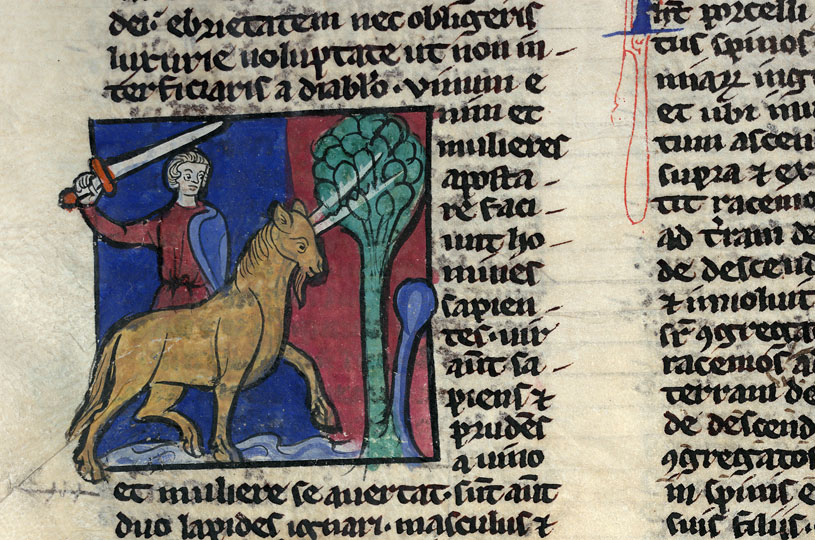 dei· ebrietatem nec obligeris
luxurie uoluptate ut non in
terficiaris a diablo· Vinum e
nim et
mulieres
aposta
re faci
unt ho
mines
sapien
tes· uir
aut sa
piens ⁊
prudēs
a uino
et muliere se auertat· sūt aūt
duo lapides ignari· masculus ⁊
porcelli
tus spinos
et ubi
tum ascen
supra ⁊ ex
tit racemo
ad t̄ram de
de descend
⁊ inuoluit
racemos a
terram de
de descend
ꝯgregato
in spinis e
suis filijs·